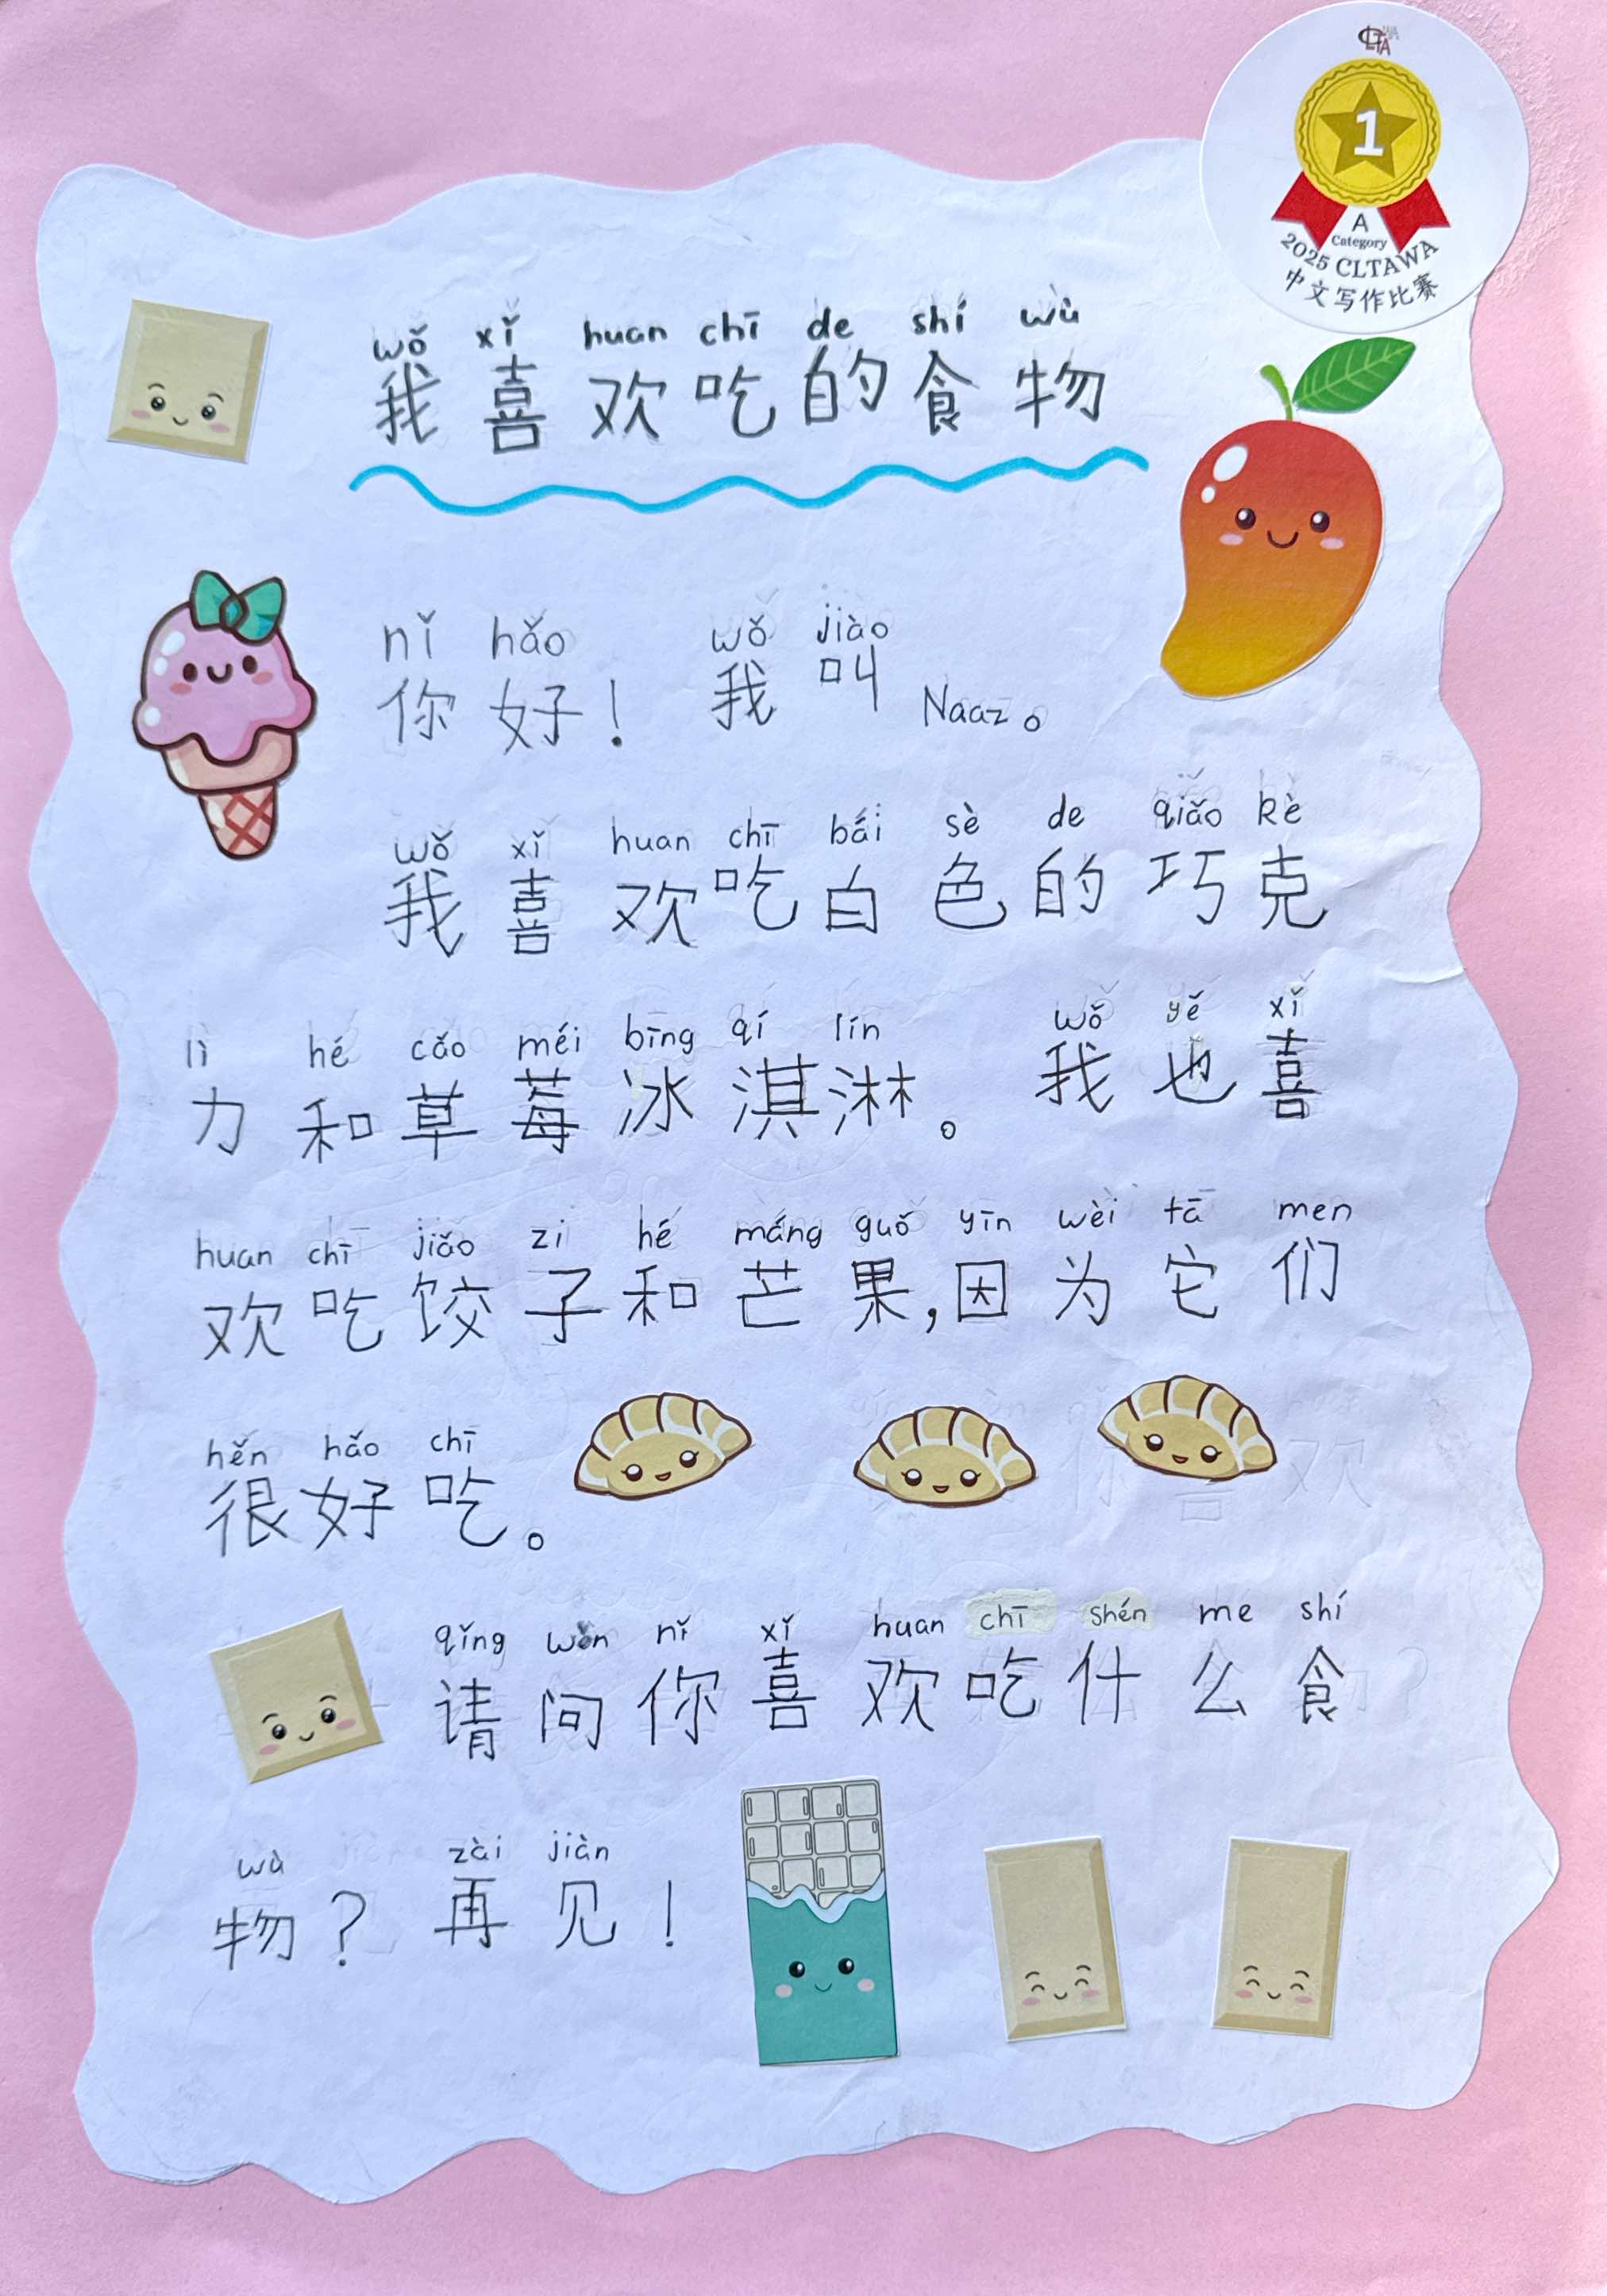 CLTAWA
1
A
Category
2025 CLTAWA
中文写作比赛
wǒ xǐ huan chī de shí wù
我喜欢吃的食物
nǐ hǎo wǒ jiào
你好！我叫 Naaz。
wǒ xǐ huan chī bái sè de qiǎo kè
我喜欢吃白色的巧克
lì hé cǎo méi bīng qí lín wǒ yě xǐ
力和草莓冰淇淋。我也喜
huan chī jiǎo zi hé máng guǒ yīn wèi tā men
欢吃饺子和芒果,因为它们
hěn hǎo chī
很好吃。
qǐng wèn nǐ xǐ huan chī shén me shí
请问你喜欢吃什么食
wù zài jiàn
物？再见！